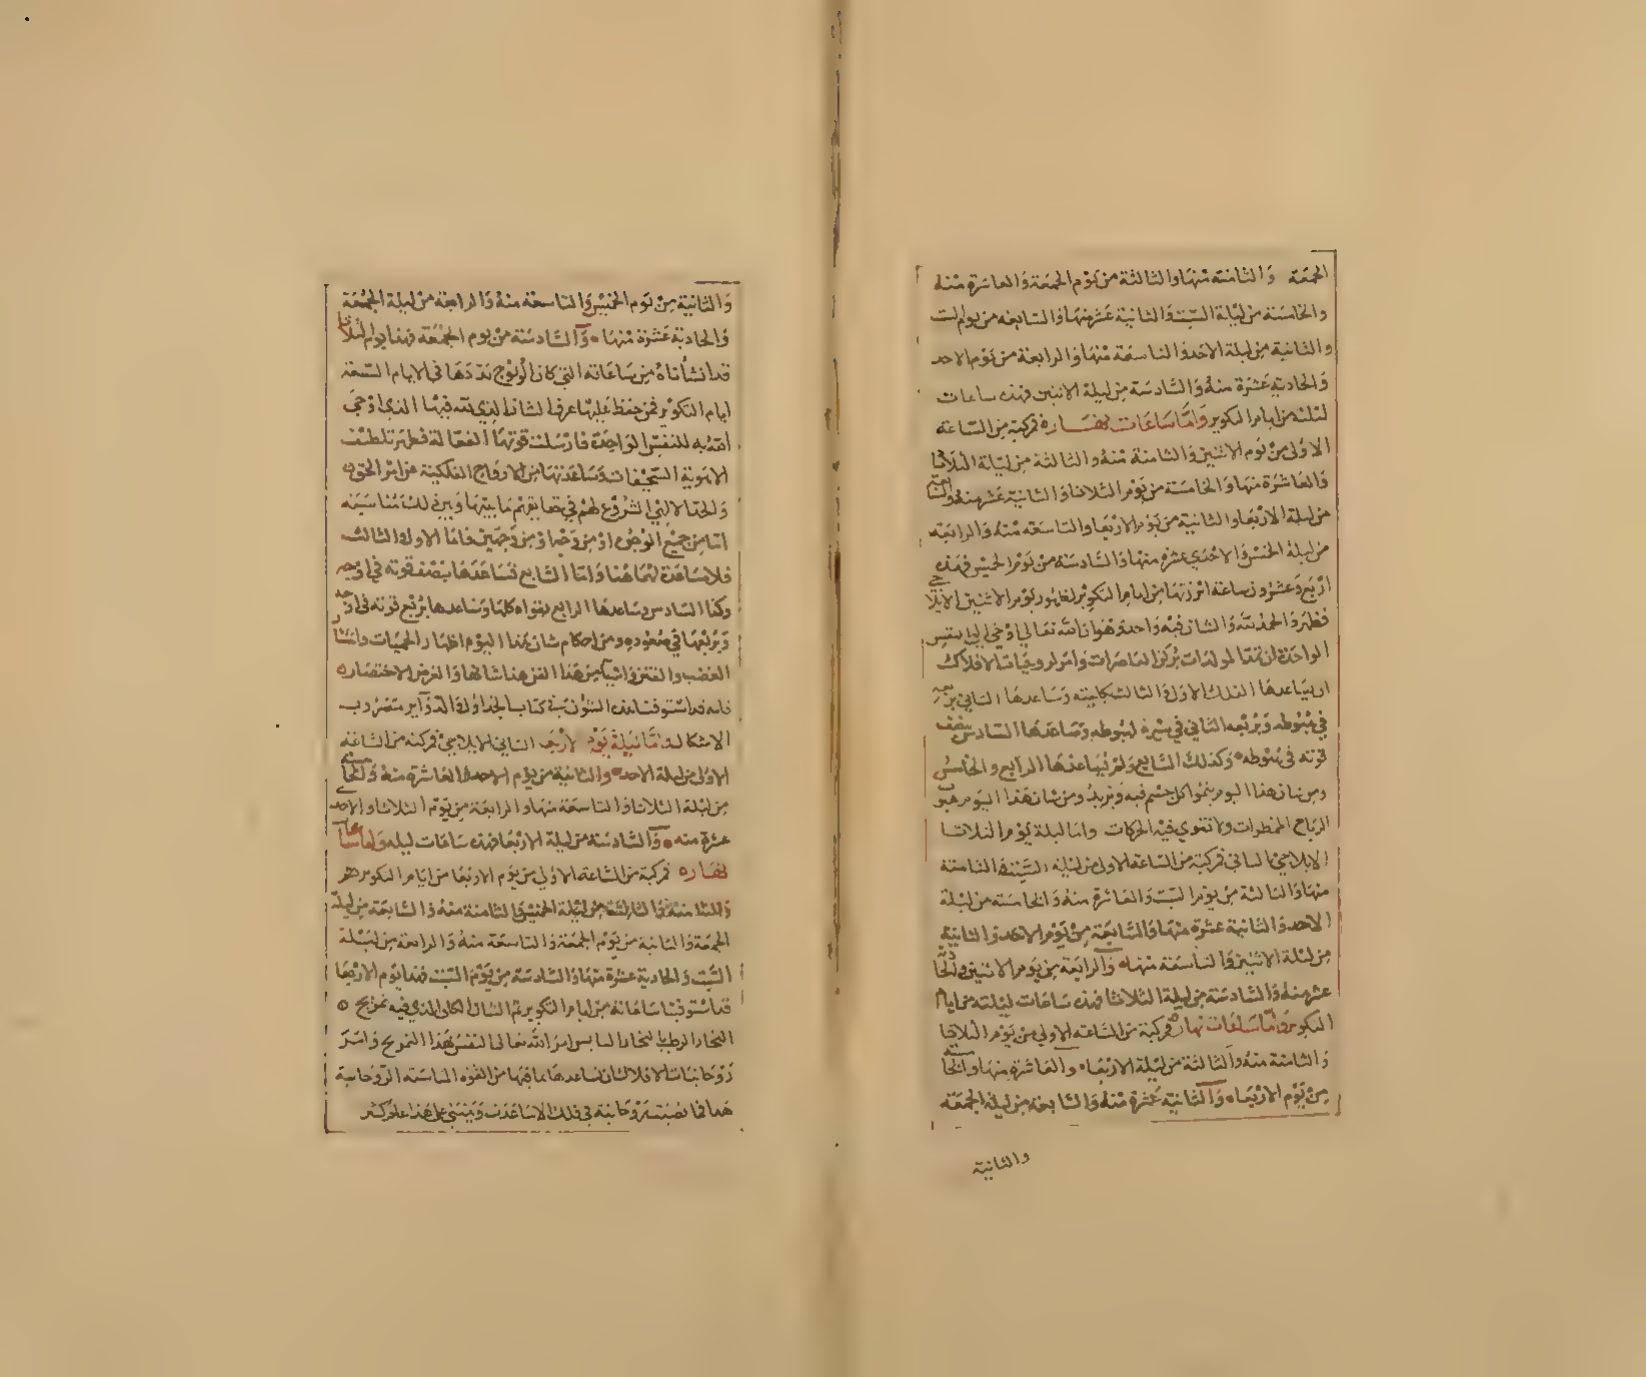 الجمعة والثامنة منها والثالثة من يوم الجمعة والعاشرة منه
والخامسة من ليلة السبت والثانية عشر منها والسابعه من يوم السبت
والثانية من ليلة الاحد والتاسعة منها والرابعة من يوم الاحد
والحادية عشرة منه والسادسة من ليلة الاثنين فهذه ساعات
ليلته من ايام التكوير واما ساعات نهاره فمركبة من الساعة
الاولى من يوم الاثنين والثامنة منه والثالثة من ليلة الثلاثا
والعاشرة منها والخامسة من يوم الثلاثا والثانية عشر منه والسابعة
من ليلة الاربعا والثانية من يوم الاربعا والتاسعة منه والرابعة
من ليلة الخميس والاحدى عشرة منها والسادسة من يوم الخميس فهذه
اربع وعشرون ساعة ابرزتها من ايام التكوير لظهور يوم الاثنين الايلاجي
فظهر والحمد لله والشان فيه واحد وهو ان الله تعالى اوحى الى النفس
الواحدة ان تمد المولدات بركن الناصرات وامر لروحانيات الافلاك
ان يساعدها الفلك الاول والثالث وساعدها الثاني
في هبوطه وبربعه الثاني في سيره لهبوطه وساعدها السادس بنصف
قوته في هبوطه وكذلك السابع ولم يساعدها الرابع والخامس
ومن شان هذا اليوم ينموا كل جسم فيه ويزيد ومن شان هذا اليوم هبوب
الرياح الممطرات ولا تقوي فيه الحركات واما ليلة يوم الثلاثا
الايلاجي الثاني فمركبة من الساعة الاولى من ليلة السبت والثامنة
منها والثالثة من يوم السبت والعاشرة منه والخامسة من ليلة
الاحد والثانية عشرة منها والسابعة من يوم الاحد والثانية
من ليلة الاثنين والتاسعة منها والرابعة من يوم الاثنين والحادية
عشر منه والسادسة من ليلة الثلاثا فهذه ساعات ليلته من ايام
التكوير واما ساعات نهاره فمركبة من الساعة الاولى من يوم الثلاثا
والثامنة منه والثالثة من ليلة الاربعا والعاشرة منها والخامسة
من يوم الاربعا والثانية عشرة منه والسابعة من ليلة الجمعة
والثانية
والثانية من يوم الخميس والتاسعة منه والرابعة من ليلة الجمعة
والحادية عشرة منها والسادسة من يوم الجمعة فهذا يوم الثلاثا
قد انشأناه من ساعاته التي كان الولوج بددها في الايام السبعة
ايام التكوير فمن حفظ عليها عرف الشان الذي لله فيها الذي اوحى
الله به للنفس الواحدة فارسلت قوتها الفعالة فظهر تلطيف
الاهوية السخيفات وساعدتها من الارواح الفلكية من امر الحق
ولحقد الالهي المشروع لهم في حقايقهم ما بينها وبين مناسبة
اما من جميع الوجوه او من وجه او من وجهين فاما الاول والثالث
فلا مساعدة لهما هنا واما السابع فساعدها بنصف قوته في اوجه
وكذا السادس وساعدها الرابع بقواه كلها وساعدها بربع قوته في
وبربعها في صعوده ومن احكام شان هذا اليوم اظهار الحميات وانتشار
الغضب والفتن واشباه من هذا الفن هذا شانها والغرض الاختصار
فانه قد استوفينا هذه الشؤن في كتاب الجداول والدواير مضروب
الاشكال واما ليلة يوم الاربعا الثاني الايلاجي فمركبة من الساعة
الاولى من ليلة الاحد والثانية من يوم الاحد والعاشرة منه والخامسة
من ليلة الثلاثا والتاسعة منها والرابعة من يوم الثلاثا والاحد
عشرة منه والسادسة من ليلة الاربعا فهذه ساعات ليله واما ساعات
نهاره فمركبة من الساعة الاولى من يوم الاربعا من ايام التكوير
والثامنة منه والثالثة من ليلة الخميس والثامنة منه والسابعة من ليلة
الجمعة والثانية من يوم الجمعة والتاسعة منه والرابعة من ليلة
السبت والحادية عشرة منها والسادسة من يوم السبت فهذا يوم الاربعا
قد استوفينا ساعاته من ايام التكوير ثم الشان الكلي الذي فيه تمزيج
البخار الرطب بالبخار اليابس امر الله تعالى النفس بهذا التمزيج وامر
روحانيات الافلاك ان تساعدها بما فيها من القوة المناسبة الروحانية